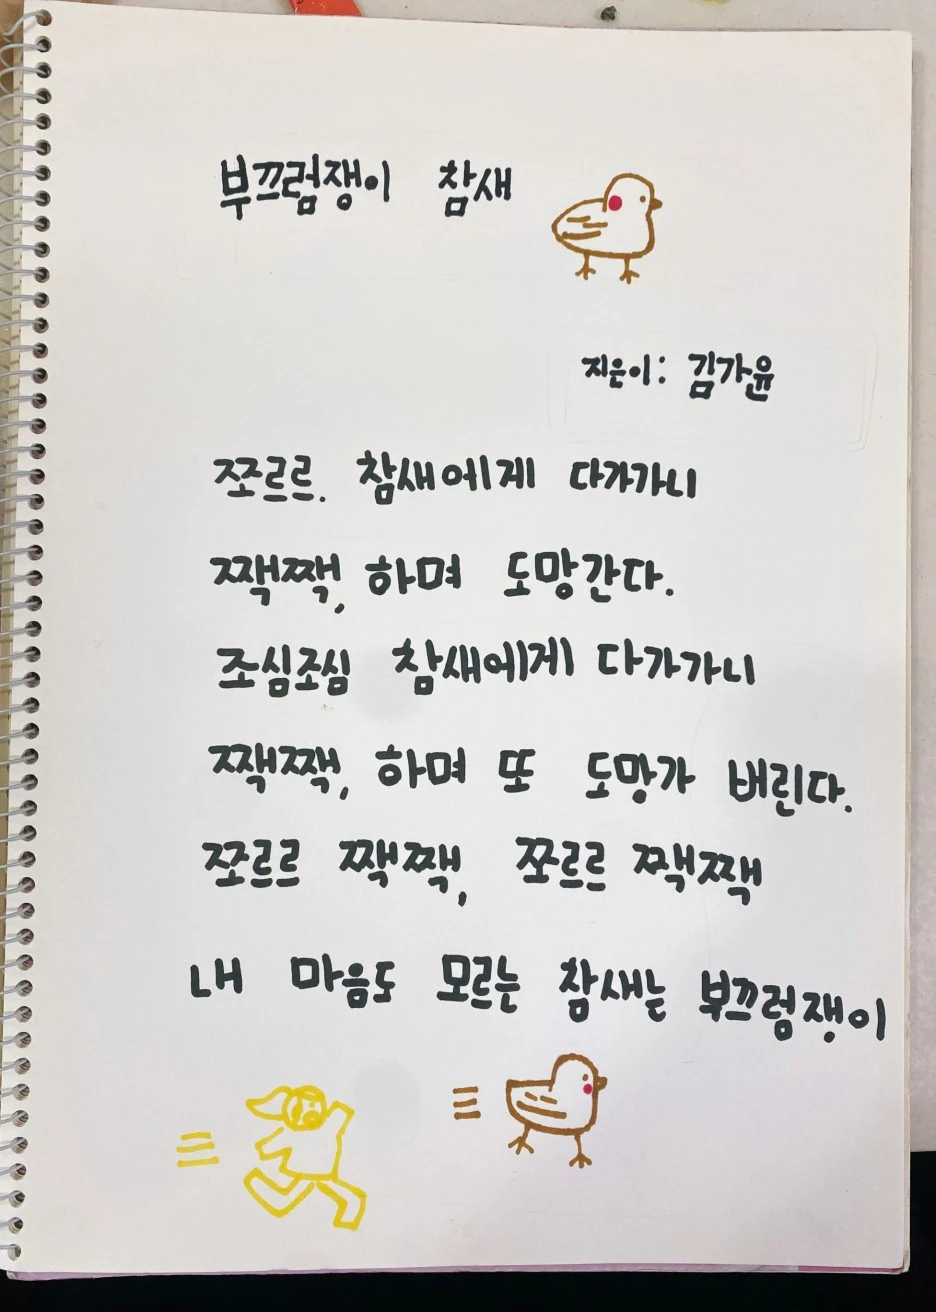 부끄럼쟁이 참새
지은이: 김가윤
쪼르르. 참새에게 다가가니
짹짹, 하며 도망간다.
조심조심 참새에게 다가가니
짹짹, 하며 또 도망가 버린다.
쪼르르 짹짹, 쪼르르 짹짹
내 마음도 모르는 참새는 부끄럼쟁이